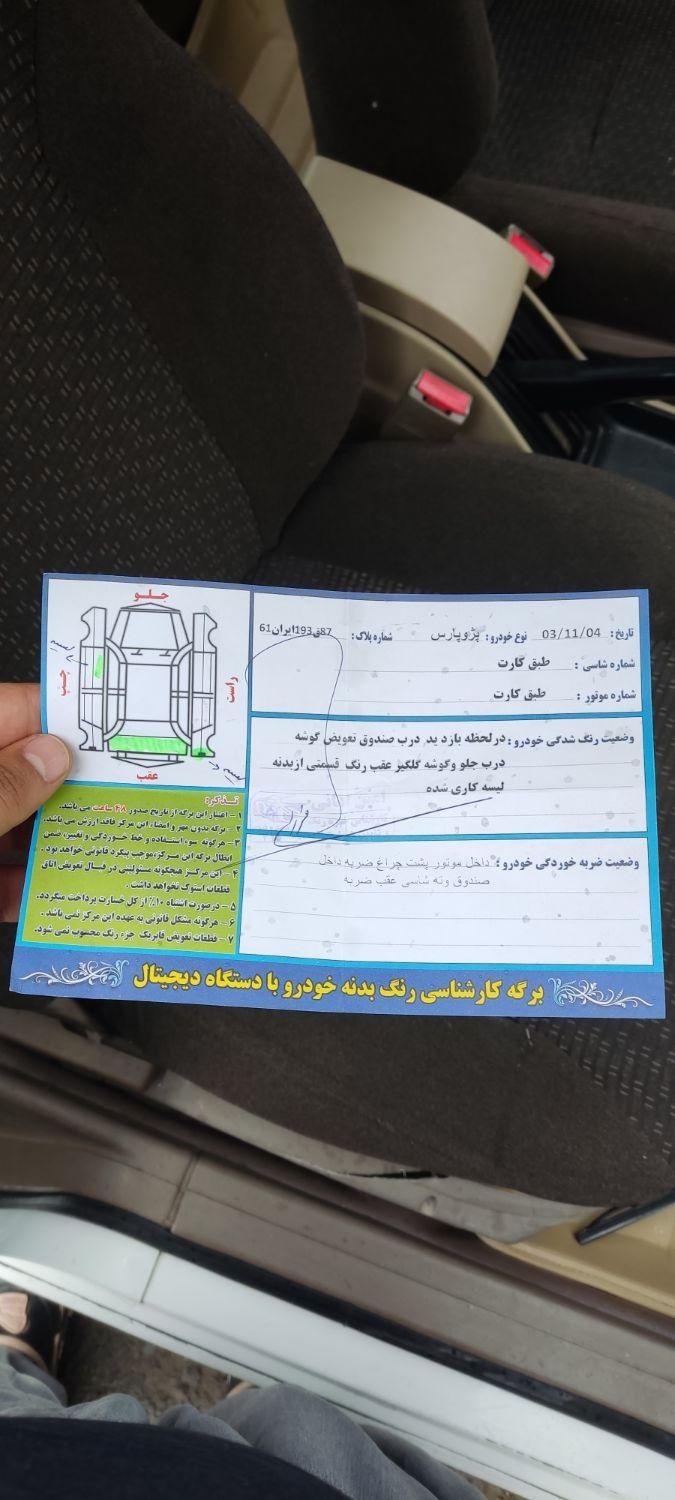 جلو
چپ
راست
عقب
لیسه
لیسه
تاریخ : 03/11/04 نوع خودرو : پژوپارس شماره پلاک : 87ق193ایران61
شماره شاسی : طبق کارت
شماره موتور : طبق کارت
وضعیت رنگ شدگی خودرو : درلحظه بازد ید درب صندوق تعویض گوشه
درب جلو وگوشه گلگیر عقب رنگ قسمتی ازبدنه
لیسه کاری شده
وضعیت ضربه خوردگی خودرو : داخل موتور پشت چراغ ضربه داخل
صندوق وته شاسی عقب ضربه
تذکر:
۱ - اعتبار این برگه از تاریخ صدور ۴۸ ساعت می باشد.
۲ - برگه بدون مهر و امضاء این مرکز فاقد ارزش می باشد.
۳ - هرگونه سوء استفاده و خط خوردگی و تغییر، ضمن
ابطال برگه این مرکز،موجب پیگرد قانونی خواهد بود .
۴ - این مرکز هیچگونه مسئولیتی در قبال تعویض اتاق
قطعات استوک نخواهد داشت .
۵ - درصورت اشتباه ۱۰% از کل خسارت پرداخت میگردد.
۶ - هرگونه مشکل قانونی به عهده این مرکز نمی باشد .
۷ - قطعات تعویض فابریک جزء رنگ محسوب نمی شود.
برگه کارشناسی رنگ بدنه خودرو با دستگاه دیجیتال